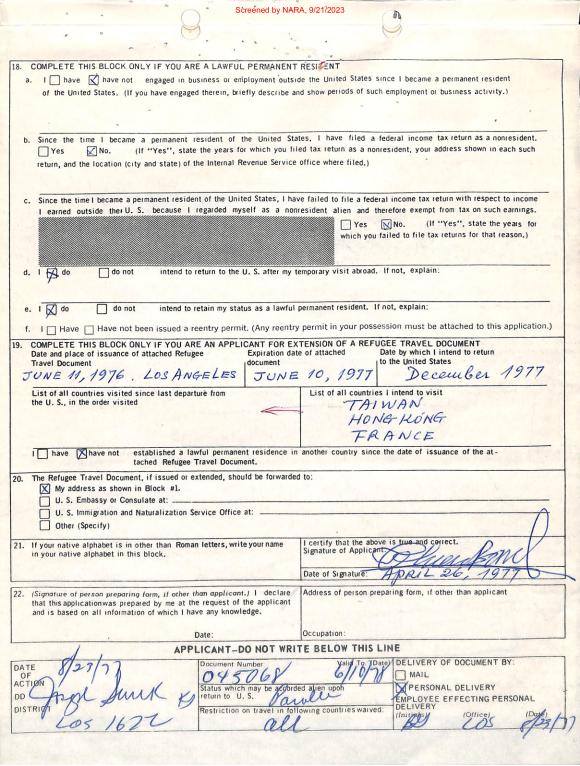 Screened by NARA, 9/21/2023
18. COMPLETE THIS BLOCK ONLY IF YOU ARE A LAWFUL PERMANENT RESIDENT
a. I have have not engaged in business or employment outside the United States since I became a permanent resident
of the United States. (If you have engaged therein, briefly describe and show periods of such employment or business activity.)
b. Since the time I became a permanent resident of the United States, I have filed a federal income tax return as a nonresident.
Yes No. (If "Yes", state the years for which you filed tax return as a nonresident, your address shown in each such
return, and the location (city and state) of the Internal Revenue Service office where filed.)
c. Since the time I became a permanent resident of the United States, I have failed to file a federal income tax return with respect to income
I earned outside the U. S. because I regarded myself as a nonresident alien and therefore exempt from tax on such earnings.
Yes No. (If "Yes", state the years for
which you failed to file tax returns for that reason.)
d. I do do not intend to return to the U. S. after my temporary visit abroad. If not, explain:
e. I do do not intend to retain my status as a lawful permanent resident. If not, explain:
f. I Have Have not been issued a reentry permit. (Any reentry permit in your possession must be attached to this application.)
19. COMPLETE THIS BLOCK ONLY IF YOU ARE AN APPLICANT FOR EXTENSION OF A REFUGEE TRAVEL DOCUMENT
Date and place of issuance of attached Refugee
Travel Document
JUNE 11, 1976. LOS ANGELES
Expiration date of attached
document
JUNE 10, 1977
Date by which I intend to return
to the United States
December 1977
List of all countries visited since last departure from
the U. S., in the order visited
List of all countries I intend to visit
TAIWAN
HONG-KONG
FRANCE
I have have not established a lawful permanent residence in another country since the date of issuance of the at-
tached Refugee Travel Document.
20. The Refugee Travel Document, if issued or extended, should be forwarded to:
X My address as shown in Block #1.
U. S. Embassy or Consulate at:
U. S. Immigration and Naturalization Service Office at:
Other (Specify)
21. If your native alphabet is in other than Roman letters, write your name
in your native alphabet in this block.
I certify that the above is true and correct.
Signature of Applicant
Date of Signature: APRIL 26, 1977
22. (Signature of person preparing form, if other than applicant.) I declare
that this application was prepared by me at the request of the applicant
and is based on all information of which I have any knowledge.
Date:
Address of person preparing form, if other than applicant
Occupation:
APPLICANT-DO NOT WRITE BELOW THIS LINE
DATE
OF
ACTION
8/23/77
DD
DISTRICT
LOS 1622
Document Number
045068
Valid To (Date)
6/10/78
Status which may be accorded alien upon
return to U. S. Parolee
Restriction on travel in following countries waived:
all
DELIVERY OF DOCUMENT BY:
MAIL
X PERSONAL DELIVERY
EMPLOYEE EFFECTING PERSONAL
DELIVERY
(Initials) (Office) (Date)
LOS 8/23/77